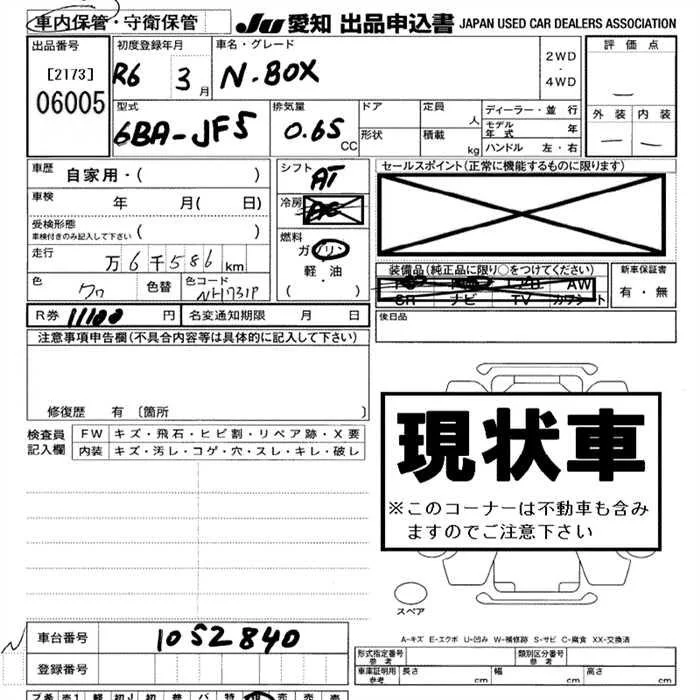 車内保管・守衛保管 JU 愛知 出品申込書 JAPAN USED CAR DEALERS ASSOCIATION
出品番号 初度登録年月 車名・グレード 2WD ・ 4WD 評価点
[2173] R6 3月 N-BOX
06005
型式 排気量 ドア 定員 人 ディーラー・並行 外装 内装
6BA-JF5 0.65 CC 形状 積載 kg モデル年式 年
ハンドル 左・右
車歴 自家用・( ) シフト AT セールスポイント(正常に機能するものに限ります)
車検 年 月( 日) 冷房 AC
受検形態
車検付きのみ記入して下さい ( ) 燃料 ガソリン
走行 万6千586km 軽・油
装備品(純正品に限り○をつけてください) 新車保証書
色 クロ 色替 色コード NH731P ( ・ ) AW 有・無
SR ナビ TV カワシート
R券 11100円 名変通知期限 月 日 後日品
注意事項申告欄(不具合内容等は具体的に記入して下さい)
修復歴 有 [箇所 ]
検査員記入欄 FW キズ・飛石・ヒビ割・リペア跡・X要
内装 キズ・汚レ・コゲ・穴・スレ・キレ・破レ
現状車
※このコーナーは不動車も含み
ますのでご注意下さい
スペア
車台番号 1052840
A-キズ E-エクボ U-凹み W-補修跡 S-サビ C-腐食 XX-交換済
登録番号 形式指定番号 参考 類別区分番号 参考
車庫証明用 参考 長さ cm 幅 cm 高さ cm